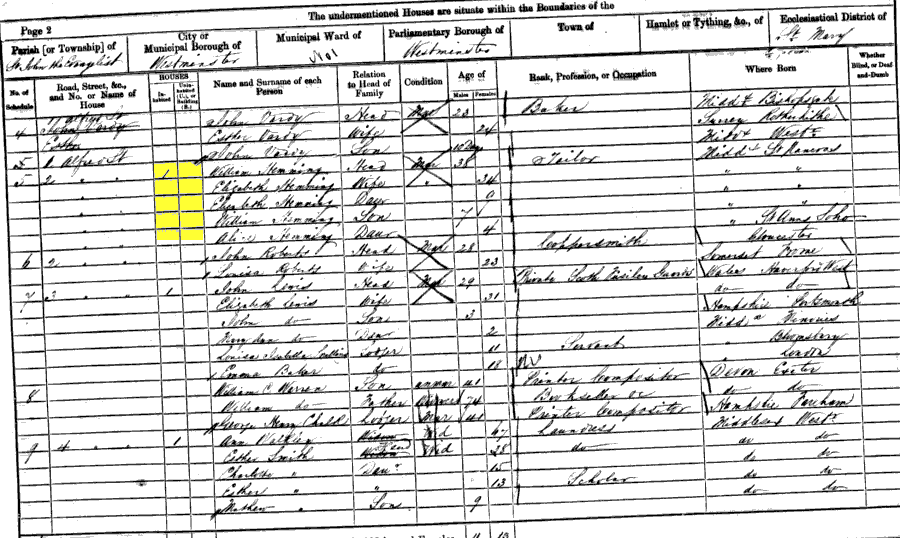 Page 2
The undermentioned Houses are situate within the Boundaries of the
Parish [or Township] of
City or Municipal Borough of
Municipal Ward of
Parliamentary Borough of
Town of
Hamlet or Tything, &c., of
Ecclesiastical District of
St John the Evangelist
Westminster
No 1
Westminster
St Mary
No. of Schedule
Road, Street, &c., and No. or Name of House
HOUSES
In-habited
Unin-habited (U.), or Building (B.)
Name and Surname of each Person
Relation to Head of Family
Condition
Age of
Males
Females
Rank, Profession, or Occupation
Where Born
Whether Blind, or Deaf-and-Dumb
4 John Vardy John Vardy Head Mar 23 Baker Midd x Bishopsgate
Esther Esther Vardy Wife 24 Surrey Rotherhithe
John Vardy Son 10 Days Midd x West r
5 1 Alfred St William Hemming Head Mar 38 Tailor Midd x St Pancras
5 2 " " 1 Elizabeth Hemming Wife " 34 " "
" " Elizabeth Hemming Daur 9 " "
" William Hemming Son 7 " "
" Alice Hemming Daur 4 " St Anns Soho
6 2 " John Roberts Head Mar 28 Coppersmith Gloucester
Louisa Roberts Wife 23 Somerset Frome
7 3 " " 1 John Lewis Head Mar 29 Private Scotch Fusilier Guards Wales Haverfordwest
Elizabeth Lewis Wife 31 do do
John do Son 3 Hampshire Portsmouth
do Daur 2 Midd x
Louisa Isabella Lodger 11 " Bloomsbury
Emma Baker do 18 Servant " London
8 William C Warren Son unmar 41 Printer Compositor Devon Exeter
William do Father Widower 74 Bookseller do do
George Henry Lodger Mar 41 Printer Compositor Hampshire Fareham
9 4 " " 1 Ann Wid 67 Laundress Middlesex West r
Esther Smith Wid 28 do do do
Charlotte " Daur 15 do do
Esther " " 13 Scholar do do
Mathew " Son 9 do do
11 13